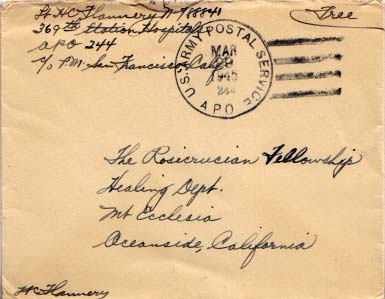 Lt HC Flannery N-788841
369th Station Hospital
APO 244
c/o P.M. San Francisco, Calif.
Free
U.S. ARMY POSTAL SERVICE
MAR
1945
244
APO
The Rosicrucian Fellowship
Healing Dept.
Mt Ecclesia
Oceanside, California
HC Flannery